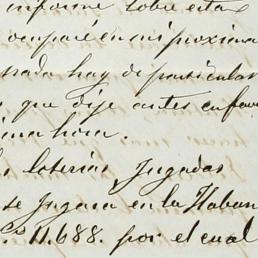 informe sobre estas
ocuparé en mi proxima
nada hay de particular
que dije antes en fav
ima hora.
loterias, Jugadas
se Jugara en la Haban
11.688. por el cual